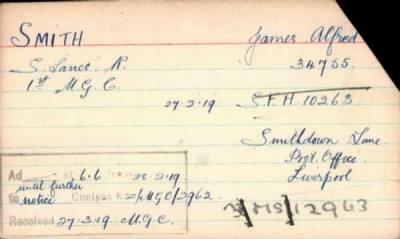 SMITH James Alfred
S. Lancs. R. 34755.
1st M.G.C.
27-2-19 S.F.H. 10263
Smithdown Lane.
Post. Office.
Liverpool
Ad at 6.6 from 28-2-19
until further
to notice Chelsea No 2/MGC/2962
Received 27-3-19 M.G.C.
MS/12963